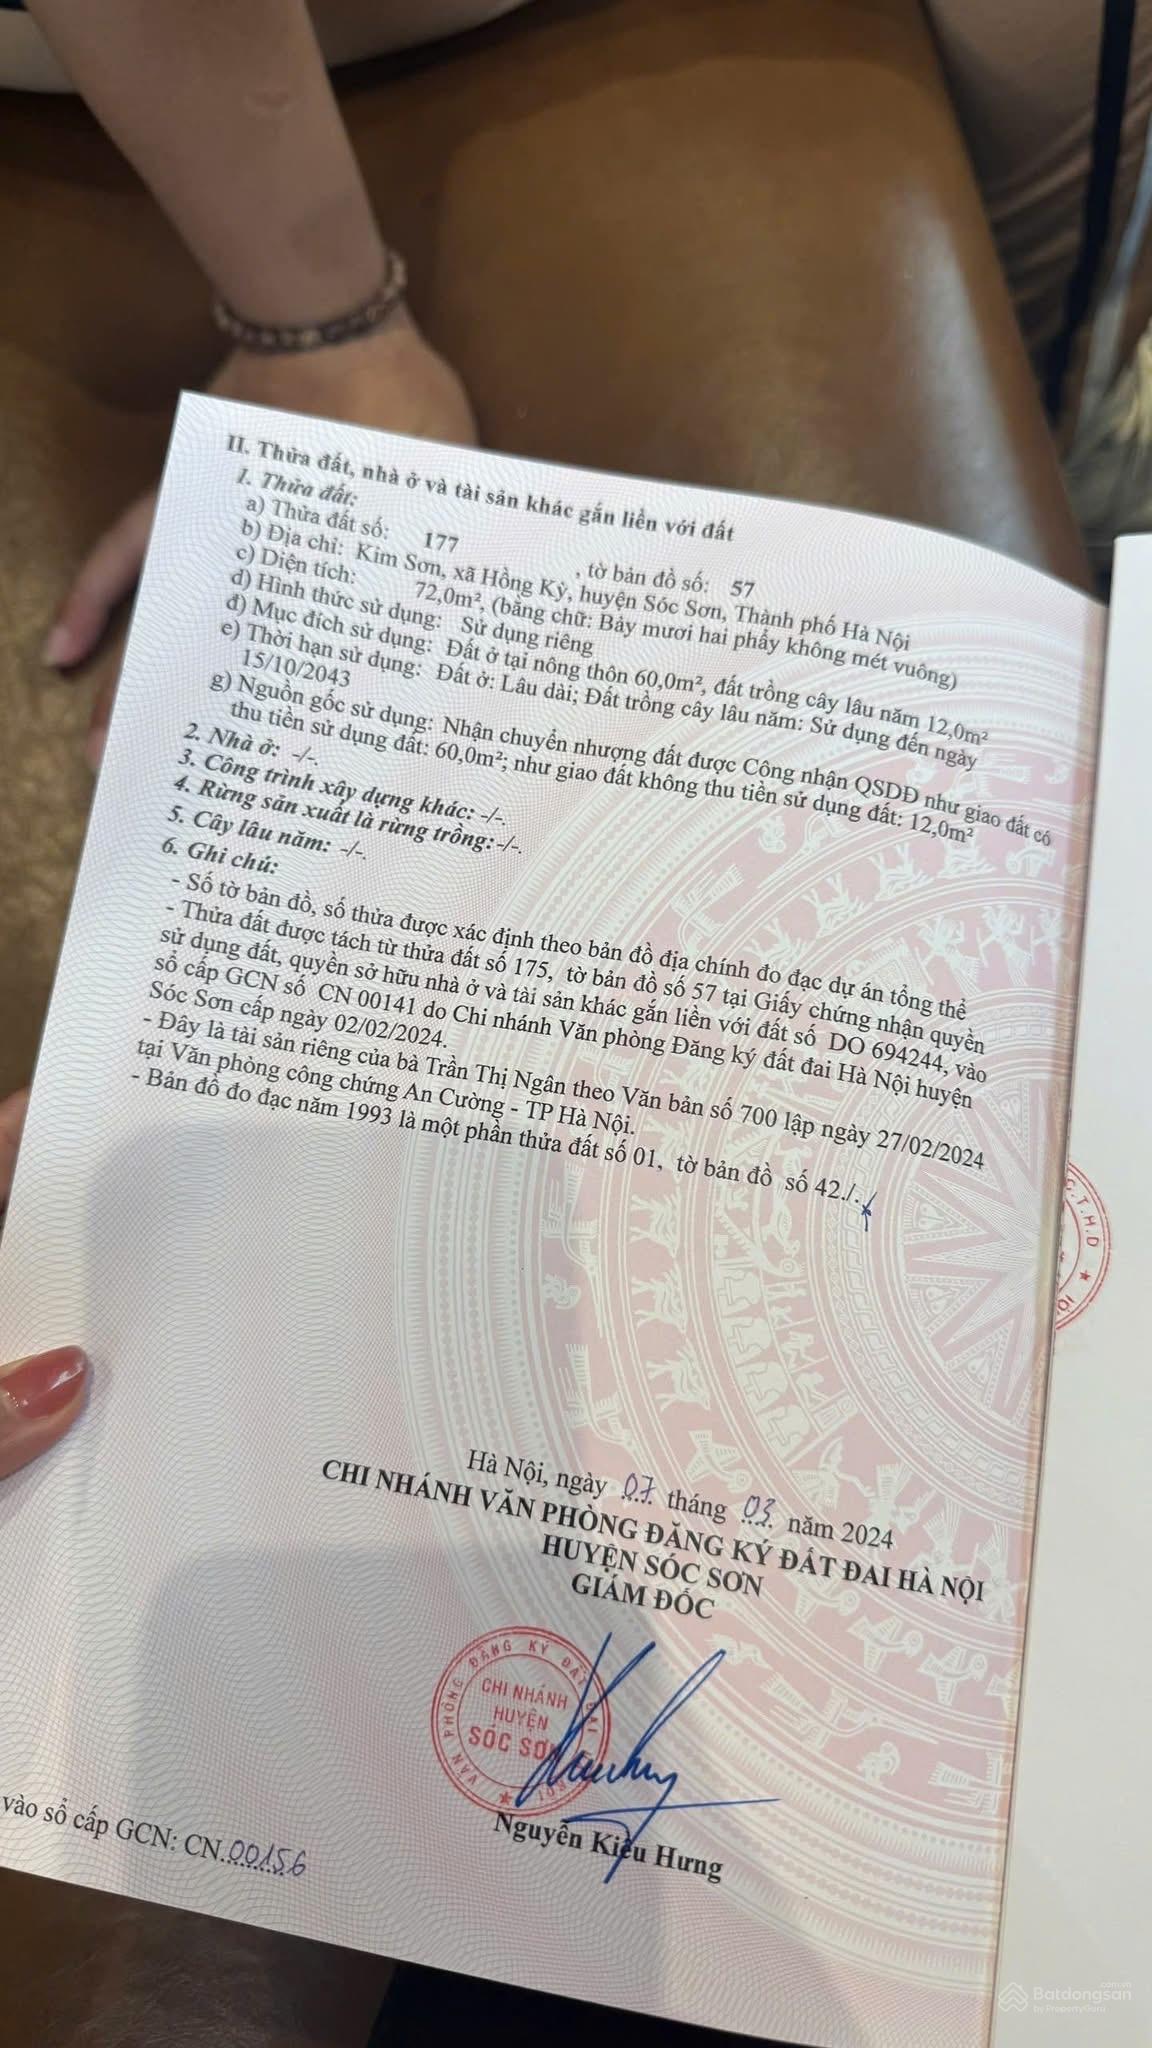 II. Thửa đất, nhà ở và tài sản khác gắn liền với đất
1. Thửa đất:
a) Thửa đất số: 177 , tờ bản đồ số: 57
b) Địa chỉ: Kim Sơn, xã Hồng Kỳ, huyện Sóc Sơn, Thành phố Hà Nội
c) Diện tích: 72,0m², (bằng chữ: Bảy mươi hai phẩy không mét vuông)
d) Hình thức sử dụng: Sử dụng riêng
đ) Mục đích sử dụng: Đất ở tại nông thôn 60,0m², đất trồng cây lâu năm 12,0m²
e) Thời hạn sử dụng: Đất ở: Lâu dài; Đất trồng cây lâu năm: Sử dụng đến ngày
15/10/2043
g) Nguồn gốc sử dụng: Nhận chuyển nhượng đất được Công nhận QSDĐ như giao đất có
thu tiền sử dụng đất: 60,0m²; như giao đất không thu tiền sử dụng đất: 12,0m²
2. Nhà ở: -/-.
3. Công trình xây dựng khác: -/-.
4. Rừng sản xuất là rừng trồng: -/-.
5. Cây lâu năm: -/-.
6. Ghi chú:
- Số tờ bản đồ, số thửa được xác định theo bản đồ địa chính đo đạc dự án tổng thể
- Thửa đất được tách từ thửa đất số 175, tờ bản đồ số 57 tại Giấy chứng nhận quyền
sử dụng đất, quyền sở hữu nhà ở và tài sản khác gắn liền với đất số DO 694244, vào
sổ cấp GCN số CN 00141 do Chi nhánh Văn phòng Đăng ký đất đai Hà Nội huyện
Sóc Sơn cấp ngày 02/02/2024.
- Đây là tài sản riêng của bà Trần Thị Ngân theo Văn bản số 700 lập ngày 27/02/2024
tại Văn phòng công chứng An Cường - TP Hà Nội.
- Bản đồ đo đạc năm 1993 là một phần thửa đất số 01, tờ bản đồ số 42./.
C.T.H.D
Hà Nội, ngày 07 tháng 03 năm 2024
CHI NHÁNH VĂN PHÒNG ĐĂNG KÝ ĐẤT ĐAI HÀ NỘI
HUYỆN SÓC SƠN
GIÁM ĐỐC
VĂN PHÒNG ĐĂNG KÝ ĐẤT ĐAI
CHI NHÁNH
HUYỆN
SÓC SƠN
Nguyễn Kiều Hưng
vào sổ cấp GCN: CN.00156
Batdongsan
.com.vn
by PropertyGuru